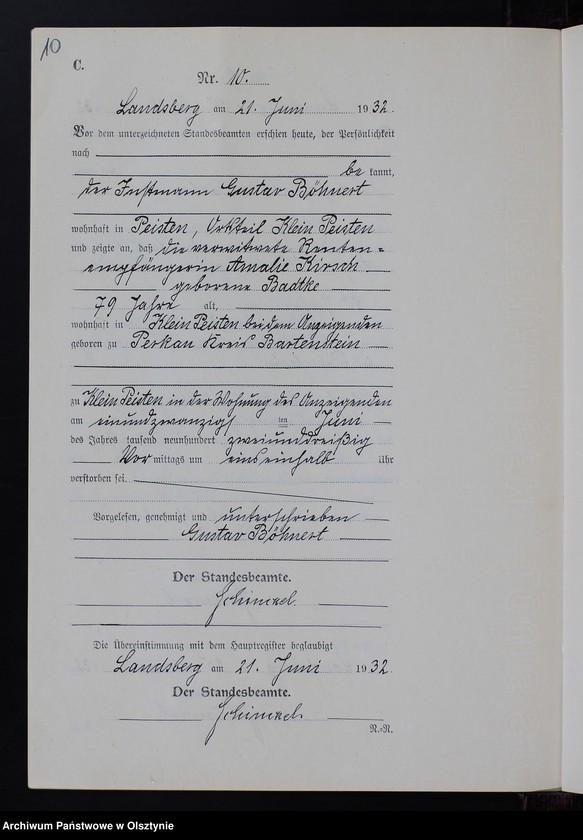 10
C.
Nr. 10.
Landsberg am 21. Juni 1932.
Vor dem unterzeichneten Standesbeamten erschien heute, der Persönlichkeit
nach
be kannt,
der Instmann Gustav Böhnert
wohnhaft in Peisten, Ortsteil Klein Peisten
und zeigte an, daß die verwitwete Renten=
empfängerin Amalie Kirsch
geborene Badtke
79 Jahre alt,
wohnhaft in Klein Peisten bei dem Anzeigenden
geboren zu Perkau Kreis Bartenstein
zu Klein Peisten in der Wohnung des Anzeigenden
am einundzwanzigsten Juni
des Jahres tausend neunhundert zweiunddreißig
Vor mittags um einseinhalb Uhr
verstorben sei.
Vorgelesen, genehmigt und unterschrieben
Gustav Böhnert
Der Standesbeamte.
Schinckel.
Die Übereinstimmung mit dem Hauptregister beglaubigt
Landsberg am 21. Juni 1932.
Der Standesbeamte.
Schinckel.
R.=R.
Archiwum Państwowe w Olsztynie